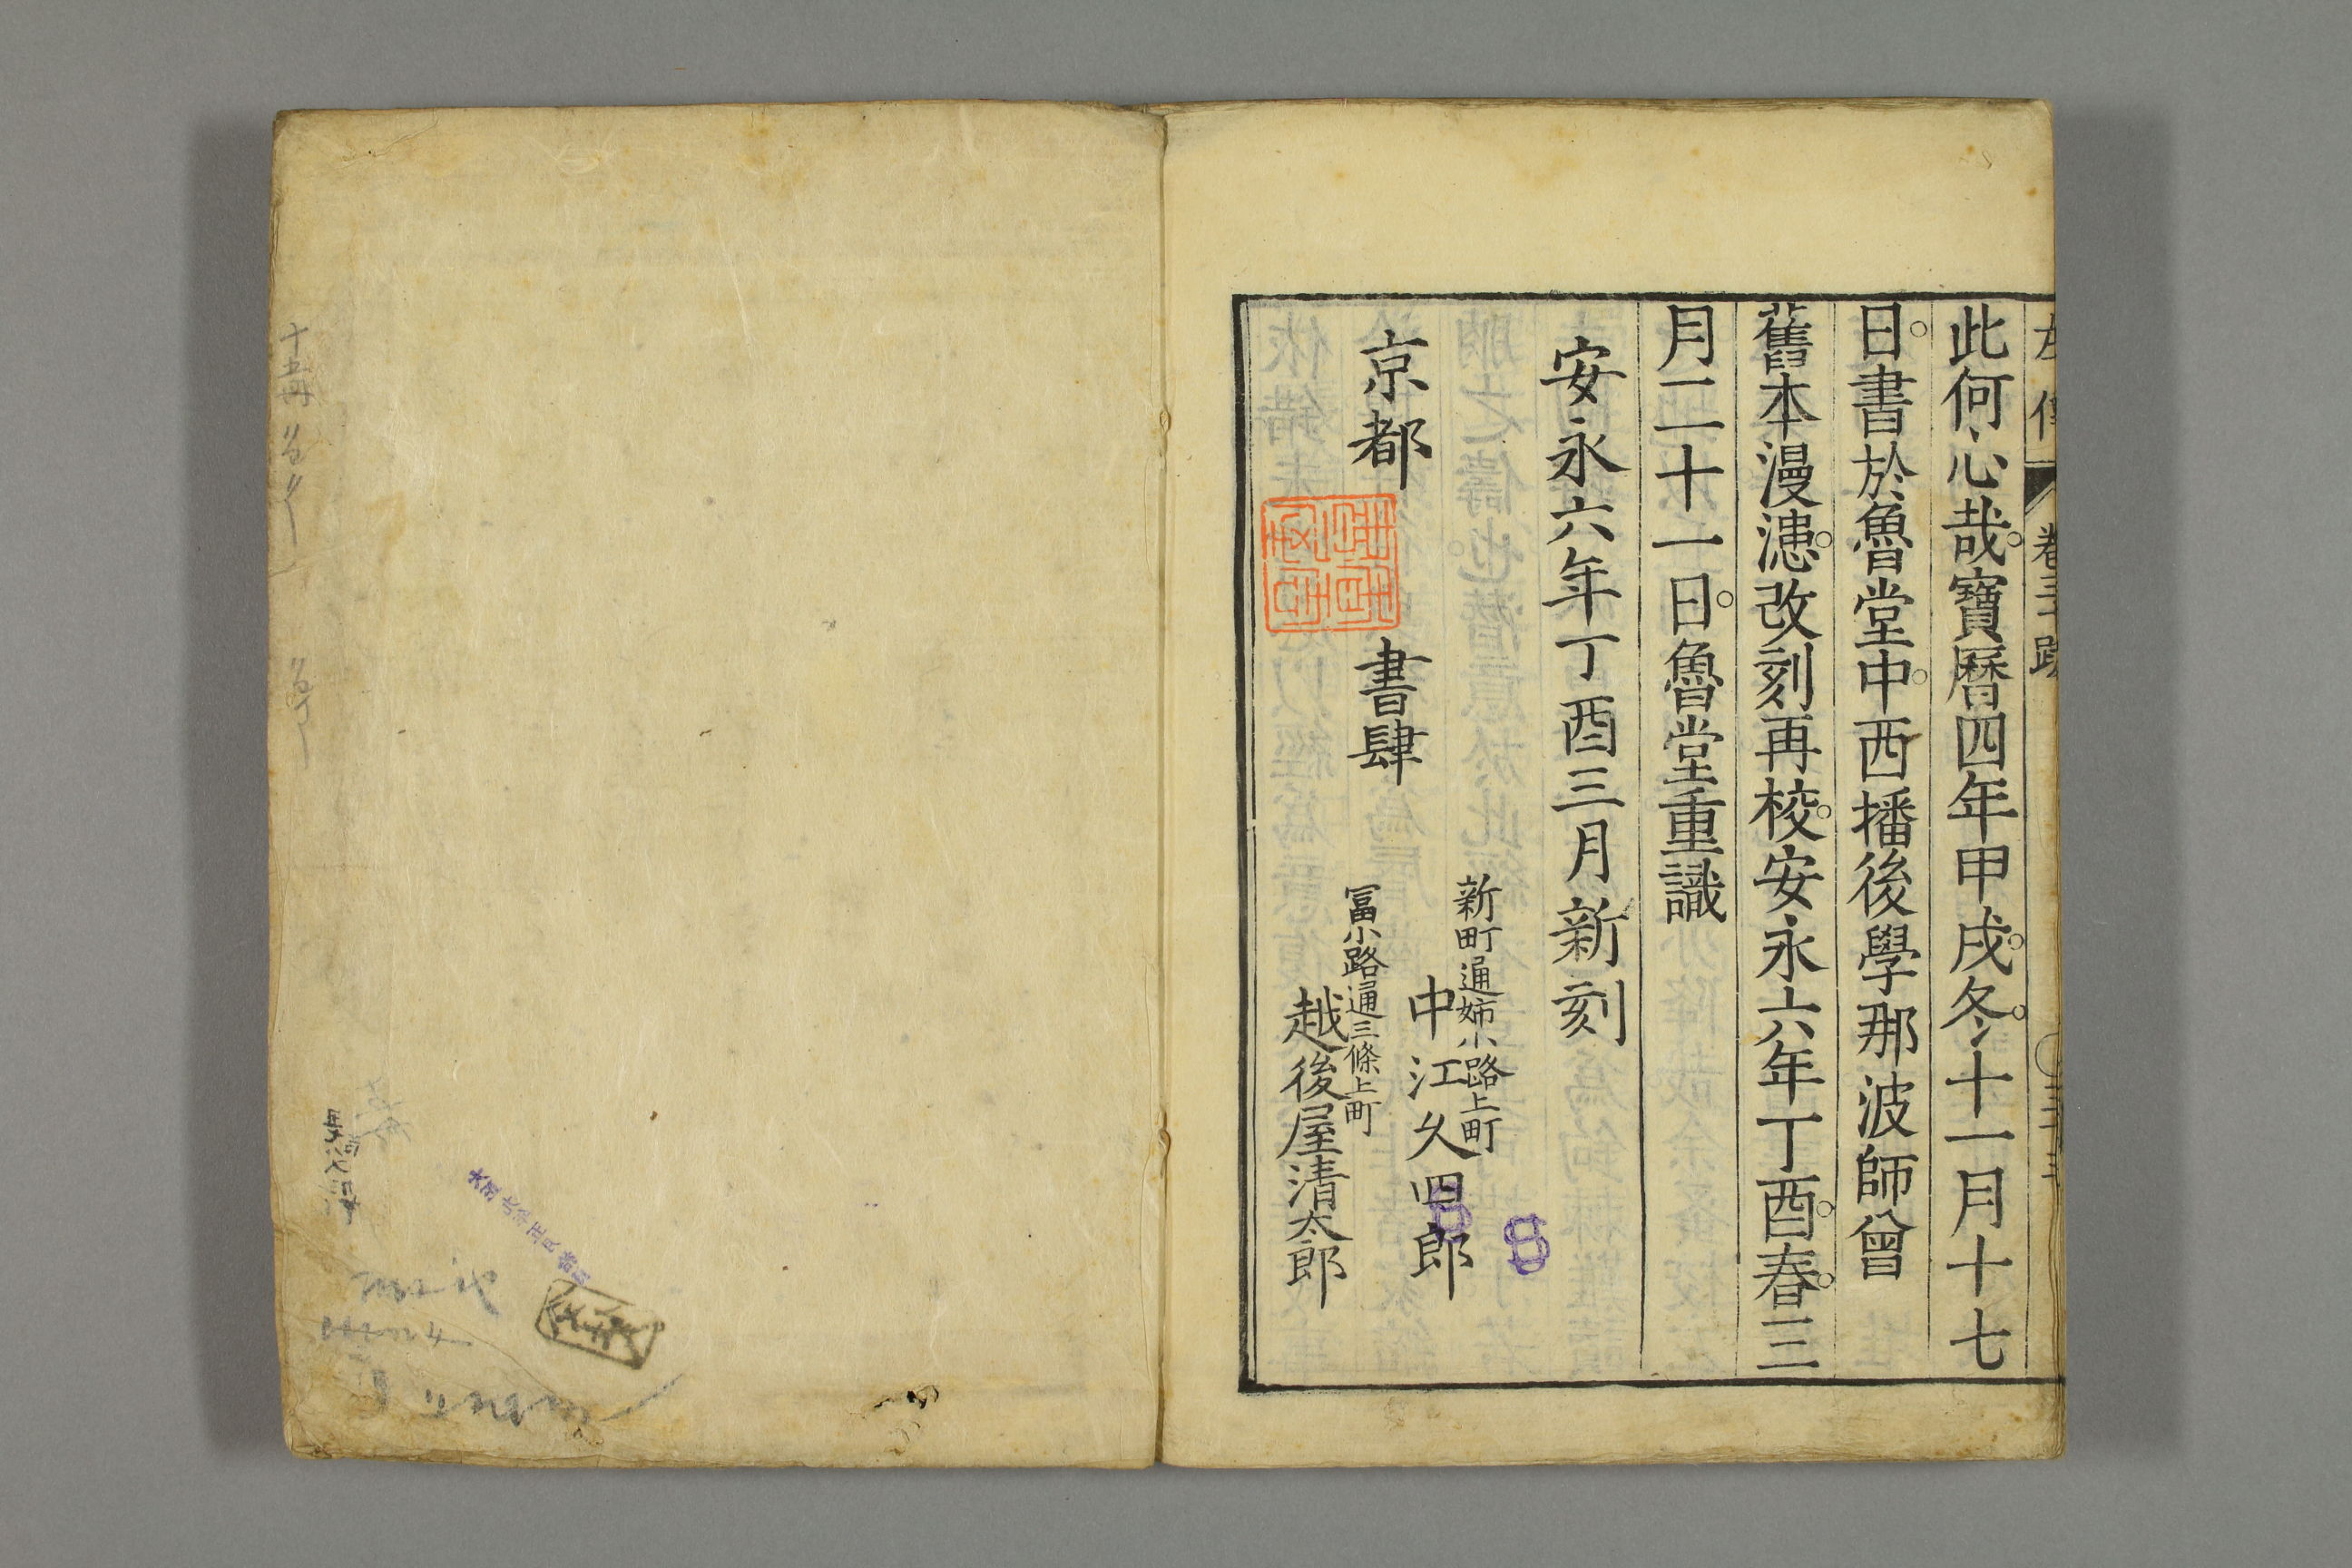 左傳 卷三十跋
此何心哉。寶曆四年甲戌。冬。十一月十七
日。書於魯堂中。西播後學那波師曾
舊本漫漶。改刻再校。安永六年丁酉。春。三
月二十一日。魯堂重識
安永六年丁酉三月新刻
京都 書肆
新町通姉小路上町
中江久四郎
冨小路通三條上町
越後屋清太郎
8
8